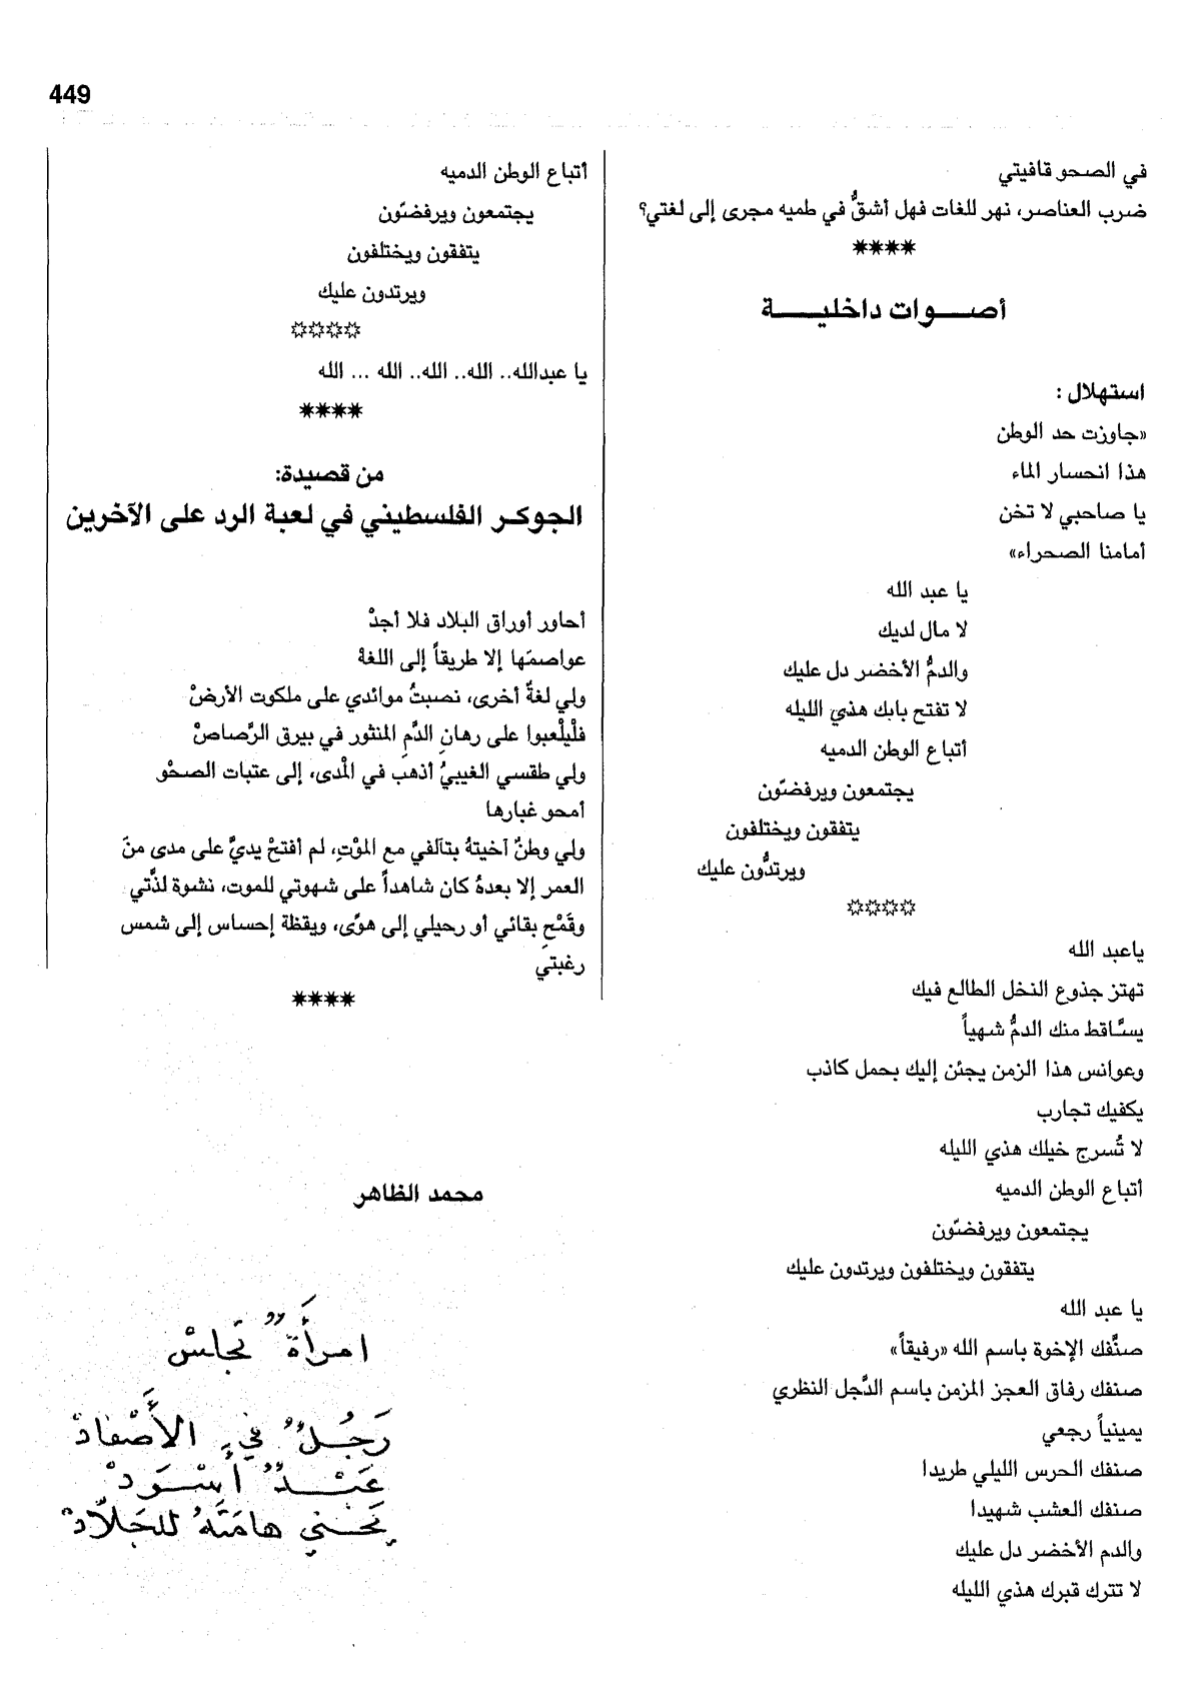 449
في الصحو قافيتي
ضرب العناصر، نهر للغات فهل أشقُّ في طميه مجرى إلى لغتي؟
****
أصوات داخلية
استهلال :
«جاوزت حد الوطن
هذا انحسار الماء
يا صاحبي لا تخن
أمامنا الصحراء»
يا عبد الله
لا مال لديك
والدمُّ الأخضر دل عليك
لا تفتح بابك هذي الليله
أتباع الوطن الدميه
يجتمعون ويرفضّون
يتفقون ويختلفون
ويرتدُّون عليك
☼☼☼☼
ياعبد الله
تهتز جذوع النخل الطالع فيك
يسَّاقط منك الدمُّ شهياً
وعوانس هذا الزمن يجئن إليك بحمل كاذب
يكفيك تجارب
لا تُسرج خيلك هذي الليله
أتباع الوطن الدميه
يجتمعون ويرفضّون
يتفقون ويختلفون ويرتدون عليك
يا عبد الله
صنَّفك الإخوة باسم الله «رفيقاً»
صنفك رفاق العجز المزمن باسم الدَّجل النظري
يمينياً رجعي
صنفك الحرس الليلي طريدا
صنفك العشب شهيدا
والدم الأخضر دل عليك
لا تترك قبرك هذي الليله
أتباع الوطن الدميه
يجتمعون ويرفضّون
يتفقون ويختلفون
ويرتدون عليك
☼☼☼☼
يا عبدالله.. الله.. الله.. الله ... الله
****
من قصيدة:
الجوكر الفلسطيني في لعبة الرد على الآخرين
أحاور أوراق البلاد فلا أجدْ
عواصمَها إلا طريقاً إلى اللغهْ
ولي لغةٌ أخرى، نصبتُ موائدي على ملكوت الأرضْ
فلْيلْعبوا على رهانِ الدَّمِ المنثور في بيرق الرَّصاصْ
ولي طقسي الغيبيُّ أذهبُ في المْدى، إلى عتبات الصحْو
أمحو غبارها
ولي وطنٌ آخيتهُ بتآلفي مع الموْتِ، لم أفتحْ يديَّ على مدى منَ
العمر إلا بعدهُ كان شاهداً على شهوتي للموت، نشوة لذَّتي
وقَمْحِ بقائي أو رحيلي إلى هوًى، ويقظة إحساس إلى شمس
رغبتي
****
محمد الظاهر
امرأَةٌ تجلسْ
رَجُلٌ في الأَصْفادْ
عَبْدٌ أَسْوَدْ
يَحني هامَتَهُ للجَلاّدْ